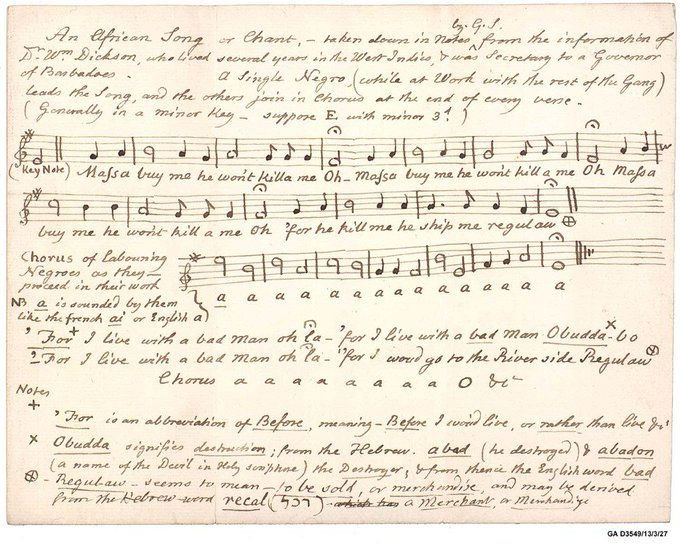 by G.S.
An African Song or Chant, – taken down in Notes, from the information of
Dr. Wm. Dickson, who lived several years in the West Indies, & was Secretary to a Governor
of Barbadoes. A Single Negro, (while at Work with the rest of the Gang)
leads the Song, and the others join in Chorus at the end of every verse.
(Generally in a minor Key – suppose E with minor 3d.)
(Key Note) Massa buy me he won't killa me Oh – Massa buy me he won't kill a me Oh Massa
buy me he won't kill a me Oh 'for he kill me he ship me regulaw ⊕
Chorus of Labouring
Negroes as they –
proceed in their work
a a a a a a a a a a a
NB a is sounded by them
like the french ai or English a)
'For+ I live with a bad man oh la – 'for I live with a bad man Obudda x – bo
'For I live with a bad man oh la – 'for I wou'd go to the River side Regulaw ⊗
Chorus a a a a a a a a O &c
Notes
+ 'For is an abbreviation of Before, meaning – Before I wou'd live, or rather than live &c
x Obudda signifies destruction; from the Hebrew. abad (he destroyed) & abadon
(a name of the Devil in Holy scripture) the Destroyer, & from thence the English word bad
⊗ – Regulaw – seems to mean – to be sold, or merchandise, and may be derived
from the Hebrew word recal (רכל) – which has a Merchant, or Merchandize
GA D3549/13/3/27